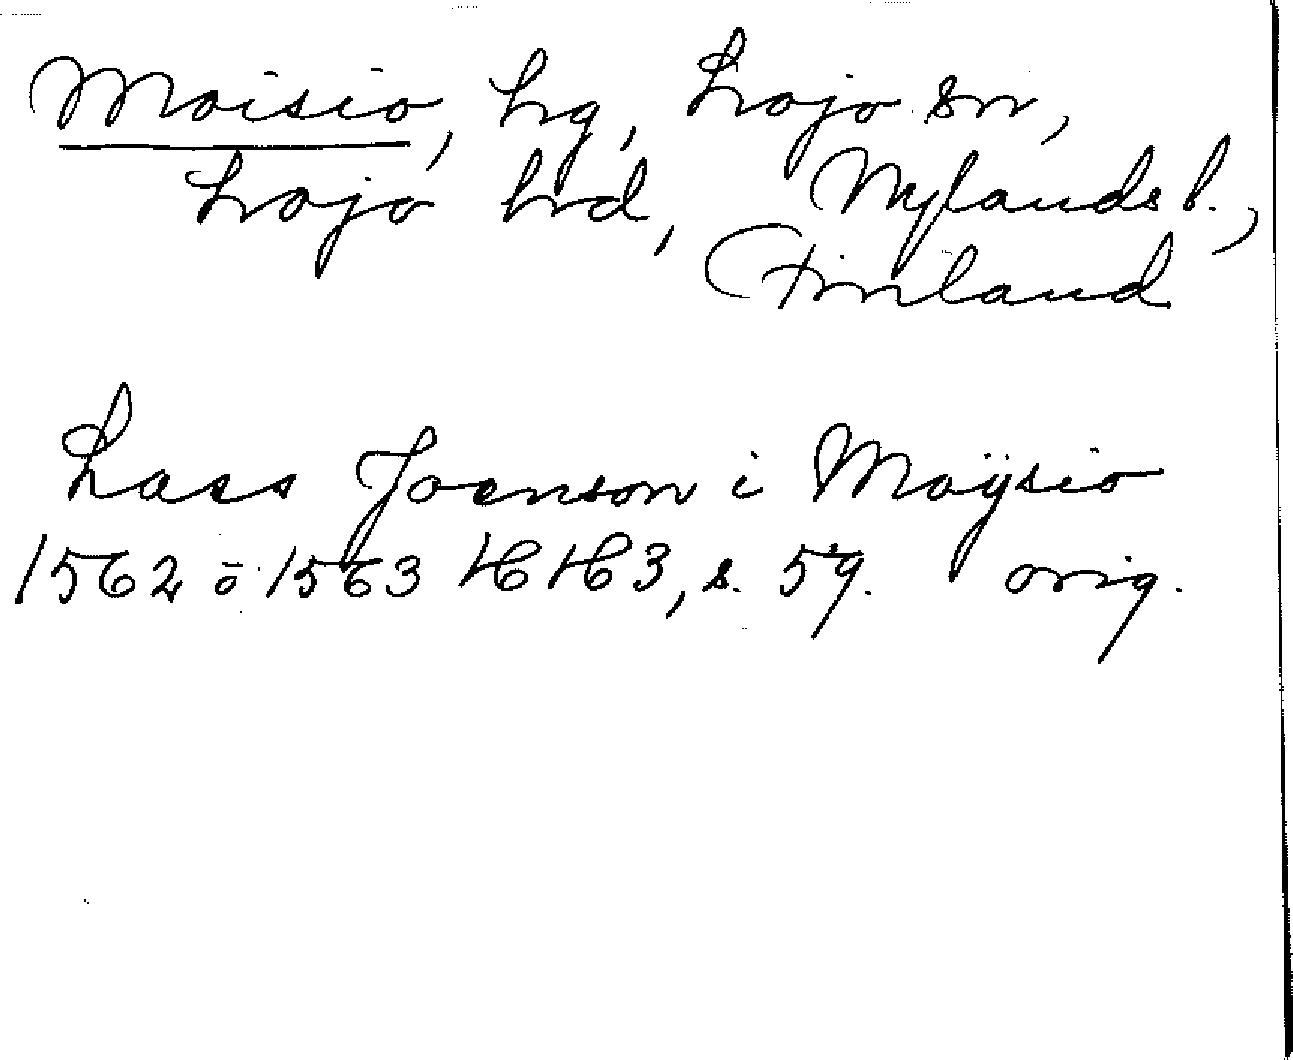 Moisio, hg, Lojo sn,
Lojo hrd, Nylands l.,
Finland
Lass Joenson i Moÿsio
1562 o 1563 HH3, s. 59. orig.